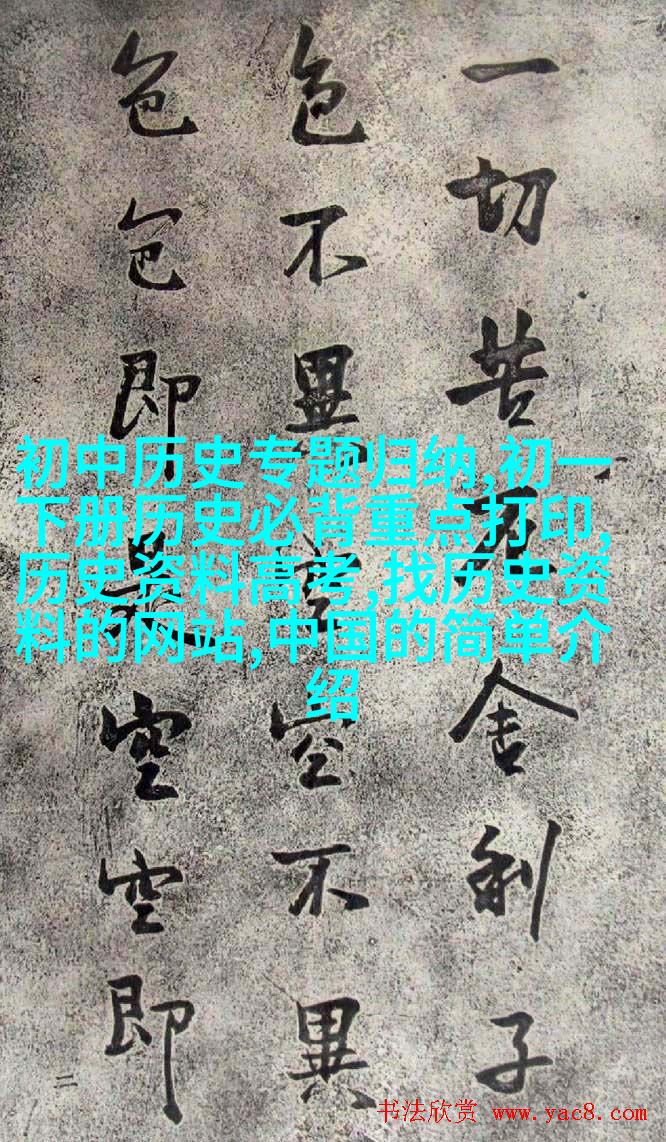 一切苦厄舍利子
色不異空空不異
色色即是空空即
二
初中历史专题归纳,初一
下册历史必背重点打印,
历史资料高考,找历史资
料的网站,中国的简单介
绍
书法欣赏 www.yac8.com